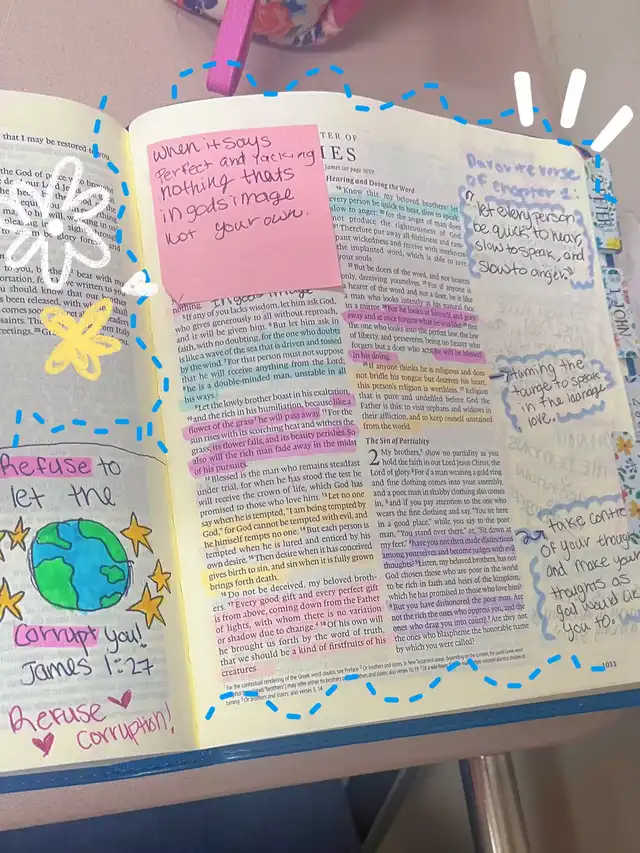 that I may be restored to you
the God of peace who brought
Refuse to
let the
Corrupt you!
James 1:27
Refuse
corruption!
When it says
Perfect and lacking
nothing thats
in gods image
not your own.
TER OF
IES
James see page 1059
Hearing and Doing the Word
nothing.
⁵If any of you lacks wisdom, let him ask God,
who gives generously to all without reproach,
and it will be given him. ⁶But let him ask in
faith, with no doubting, for the one who doubts
is like a wave of the sea that is driven and tossed
by the wind. ⁷For that person must not suppose
that he will receive anything from the Lord;
⁸he is a double-minded man, unstable in all
his ways.
⁹Let the lowly brother boast in his exaltation,
¹⁰and the rich in his humiliation, because like a
flower of the grass he will pass away. ¹¹For the
sun rises with its scorching heat and withers the
grass; its flower falls, and its beauty perishes. So
also will the rich man fade away in the midst
of his pursuits.
¹²Blessed is the man who remains steadfast
under trial, for when he has stood the test he
will receive the crown of life, which God has
promised to those who love him. ¹³Let no one
say when he is tempted, "I am being tempted by
God," for God cannot be tempted with evil, and
he himself tempts no one. ¹⁴But each person is
tempted when he is lured and enticed by his
own desire. ¹⁵Then desire when it has conceived
gives birth to sin, and sin when it is fully grown
brings forth death.
¹⁶Do not be deceived, my beloved broth-
ers. ¹⁷Every good gift and every perfect gift
is from above, coming down from the Father
of lights, with whom there is no variation
or shadow due to change. ¹⁸Of his own will
he brought us forth by the word of truth,
that we should be a kind of firstfruits of his
creatures.
¹⁹Know this, my beloved brothers: let
every person be quick to hear, slow to speak,
slow to anger; ²⁰for the anger of man does
not produce the righteousness of God.
²¹Therefore put away all filthiness and ram-
pant wickedness and receive with meekness
the implanted word, which is able to save
your souls.
²²But be doers of the word, and not hearers
only, deceiving yourselves. ²³For if anyone is
a hearer of the word and not a doer, he is like
a man who looks intently at his natural face
in a mirror. ²⁴For he looks at himself and goes
away and at once forgets what he was like. ²⁵But
the one who looks into the perfect law, the law
of liberty, and perseveres, being no hearer who
forgets but a doer who acts, he will be blessed
in his doing.
²⁶If anyone thinks he is religious and does
not bridle his tongue but deceives his heart,
this person's religion is worthless. ²⁷Religion
that is pure and undefiled before God the
Father is this: to visit orphans and widows in
their affliction, and to keep oneself unstained
from the world.
The Sin of Partiality
2 My brothers, show no partiality as you
hold the faith in our Lord Jesus Christ, the
Lord of glory. ²For if a man wearing a gold ring
and fine clothing comes into your assembly,
and a poor man in shabby clothing also comes
in, ³and if you pay attention to the one who
wears the fine clothing and say, "You sit here
in a good place," while you say to the poor
man, "You stand over there," or, "Sit down at
my feet," ⁴have you not then made distinctions
among yourselves and become judges with evil
thoughts? ⁵Listen, my beloved brothers, has not
God chosen those who are poor in the world
to be rich in faith and heirs of the kingdom,
which he has promised to those who love him?
⁶But you have dishonored the poor man. Are
not the rich the ones who oppress you, and the
ones who drag you into court? ⁷Are they not
the ones who blaspheme the honorable name
by which you were called?
1011
Favorite verse
of chapter 1:
"let every person
be quick to hear,
slow to speak, and
slow to anger"
taming the
tounge to speak
in the lounage
love.
take contro
of your though
and make your
thoughts as
god would like
you to.
JOHN